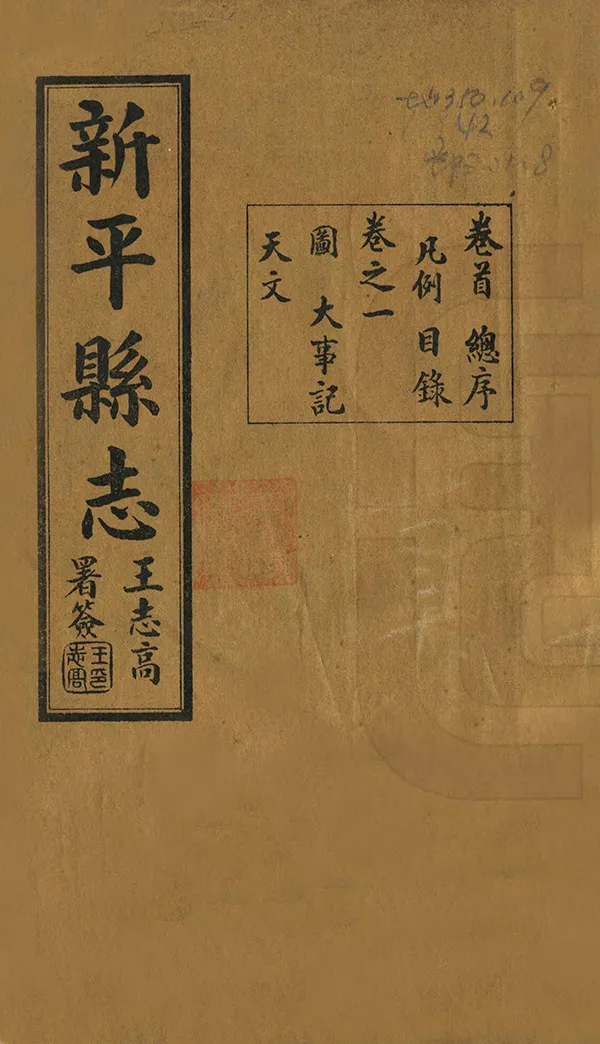 新平縣志
王志高
署簽
王印
志高
卷首 總序
凡例 目錄
卷之一
圖 大事記
天文
42